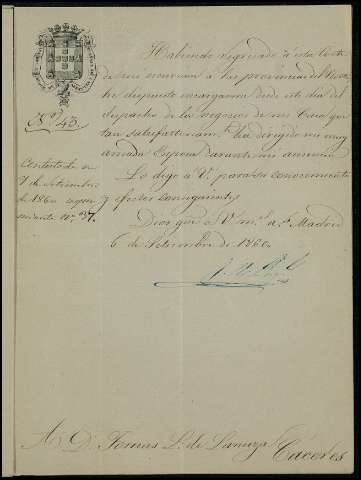 Nº 43.
Contestada en
7 de Setiembre
de 1860
Nº 37.
Habiendo regresado á esta Corte
de mi á las provincias del Norte
he dispuesto encargarme desde este dia del
despacho de los negocios de mi Casa que
tan satisfactoriamte. ha dirigido mi muy
amada Esposa durante mi ausencia
Lo digo á V. para su conocimiento
y efectos consiguientes.
Dios gue. á V. ms. as. Madrid
6 de Setiembre de 1860.
A D. Tomas L. de Lanuza Cáceres